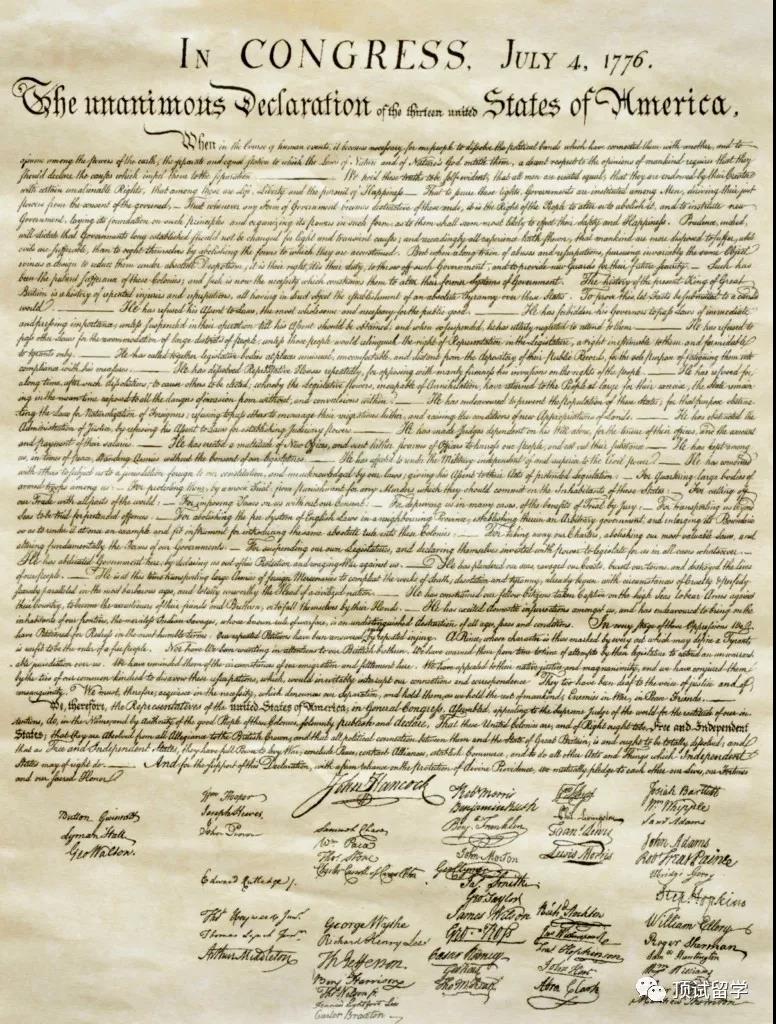 IN CONGRESS, JULY 4, 1776.
The unanimous Declaration of the thirteen united States of America,
When in the Course of human events, it becomes necessary for one people to dissolve the political bands which have connected them with another, and to
assume among the powers of the earth, the separate and equal station to which the Laws of Nature and of Nature's God entitle them, a decent respect to the opinions of mankind requires that they
should declare the causes which impel them to the separation. — We hold these truths to be self-evident, that all men are created equal, that they are endowed by their Creator
with certain unalienable Rights, that among these are Life, Liberty and the pursuit of Happiness. — That to secure these rights, Governments are instituted among Men, deriving their just
powers from the consent of the governed, — That whenever any Form of Government becomes destructive of these ends, it is the Right of the People to alter or to abolish it, and to institute new
Government, laying its foundation on such principles and organizing its powers in such form, as to them shall seem most likely to effect their Safety and Happiness. Prudence, indeed,
will dictate that Governments long established should not be changed for light and transient causes; and accordingly all experience hath shewn, that mankind are more disposed to suffer, while
evils are sufferable, than to right themselves by abolishing the forms to which they are accustomed. But when a long train of abuses and usurpations, pursuing invariably the same Object
evinces a design to reduce them under absolute Despotism, it is their right, it is their duty, to throw off such Government, and to provide new Guards for their future security. — Such has
been the patient sufferance of these Colonies; and such is now the necessity which constrains them to alter their former Systems of Government. The history of the present King of Great
Britain is a history of repeated injuries and usurpations, all having in direct object the establishment of an absolute Tyranny over these States. To prove this, let Facts be submitted to a candid
world. — He has refused his Assent to Laws, the most wholesome and necessary for the public good. — He has forbidden his Governors to pass Laws of immediate
and pressing importance, unless suspended in their operation till his Assent should be obtained; and when so suspended, he has utterly neglected to attend to them. — He has refused to
pass other Laws for the accommodation of large districts of people, unless those people would relinquish the right of Representation in the Legislature, a right inestimable to them and formidable
to tyrants only. — He has called together legislative bodies at places unusual, uncomfortable, and distant from the depository of their public Records, for the sole purpose of fatiguing them into
compliance with his measures. — He has dissolved Representative Houses repeatedly, for opposing with manly firmness his invasions on the rights of the people. — He has refused for
a long time, after such dissolutions, to cause others to be elected; whereby the Legislative powers, incapable of Annihilation, have returned to the People at large for their exercise; the State remain-
ing in the mean time exposed to all the dangers of invasion from without, and convulsions within. — He has endeavoured to prevent the population of these States; for that purpose obstruc-
ting the Laws for Naturalization of Foreigners; refusing to pass others to encourage their migrations hither, and raising the conditions of new Appropriations of Lands. — He has obstructed the
Administration of Justice, by refusing his Assent to Laws for establishing Judiciary powers. — He has made Judges dependent on his Will alone, for the tenure of their offices, and the amount
and payment of their salaries. — He has erected a multitude of New Offices, and sent hither swarms of Officers to harrass our people, and eat out their substance. — He has kept among
us, in times of peace, Standing Armies without the Consent of our legislatures. — He has affected to render the Military independent of and superior to the Civil power. — He has combined
with others to subject us to a jurisdiction foreign to our constitution, and unacknowledged by our laws; giving his Assent to their Acts of pretended Legislation: — For Quartering large bodies of
armed troops among us: — For protecting them, by a mock Trial, from punishment for any Murders which they should commit on the Inhabitants of these States: — For cutting off
our Trade with all parts of the world: — For imposing Taxes on us without our Consent: — For depriving us in many cases, of the benefits of Trial by Jury: — For transporting us beyond
Seas to be tried for pretended offences: — For abolishing the free System of English Laws in a neighbouring Province, establishing therein an Arbitrary government, and enlarging its Boundaries
so as to render it at once an example and fit instrument for introducing the same absolute rule into these Colonies: — For taking away our Charters, abolishing our most valuable Laws, and
altering fundamentally the Forms of our Governments: — For suspending our own Legislatures, and declaring themselves invested with power to legislate for us in all cases whatsoever. —
He has abdicated Government here, by declaring us out of his Protection and waging War against us. — He has plundered our seas, ravaged our Coasts, burnt our towns, and destroyed the lives
of our people. — He is at this time transporting large Armies of foreign Mercenaries to compleat the works of death, desolation and tyranny, already begun with circumstances of Cruelty & perfidy
scarcely paralleled in the most barbarous ages, and totally unworthy the Head of a civilized nation. — He has constrained our fellow Citizens taken Captive on the high Seas to bear Arms against
their Country, to become the executioners of their friends and Brethren, or to fall themselves by their Hands. — He has excited domestic insurrections amongst us, and has endeavoured to bring on the
inhabitants of our frontiers, the merciless Indian Savages, whose known rule of warfare, is an undistinguished destruction of all ages, sexes and conditions. In every stage of these Oppressions We
have Petitioned for Redress in the most humble terms: Our repeated Petitions have been answered by repeated injury. A Prince, whose character is thus marked by every act which may define a Tyrant,
is unfit to be the ruler of a free people. Nor have We been wanting in attentions to our Brittish brethren. We have warned them from time to time of attempts by their legislature to extend an unwarrant-
able jurisdiction over us. We have reminded them of the circumstances of our emigration and settlement here. We have appealed to their native justice and magnanimity, and we have conjured them
by the ties of our common kindred to disavow these usurpations, which, would inevitably interrupt our connections and correspondence. They too have been deaf to the voice of justice and of
consanguinity. We must, therefore, acquiesce in the necessity, which denounces our Separation, and hold them, as we hold the rest of mankind, Enemies in War, in Peace Friends. —
We, therefore, the Representatives of the united States of America, in General Congress, Assembled, appealing to the Supreme Judge of the world for the rectitude of our in-
tentions, do, in the Name, and by Authority of the good People of these Colonies, solemnly publish and declare, That these United Colonies are, and of Right ought to be Free and Independent
States; that they are Absolved from all Allegiance to the British Crown, and that all political connection between them and the State of Great Britain, is and ought to be totally dissolved; and
that as Free and Independent States, they have full Power to levy War, conclude Peace, contract Alliances, establish Commerce, and to do all other Acts and Things which Independent
States may of right do. — And for the support of this Declaration, with a firm reliance on the protection of divine Providence, we mutually pledge to each other our Lives, our Fortunes
and our sacred Honor.
Button Gwinnett
Lyman Hall
Geo Walton.
Wm Hooper
Joseph Hewes,
John Penn
Edward Rutledge
Thos Heyward Junr.
Thomas Lynch Junr.
Arthur Middleton
John Hancock
Samuel Chase
Wm Paca
Thos Stone
Charles Carroll of Carrollton
George Wythe
Richard Henry Lee
Th Jefferson
Benj Harrison
Thos Nelson jr.
Francis Lightfoot Lee
Carter Braxton
Robt Morris
Benjamin Rush
Benj. Franklin
John Morton
Geo Clymer
Jas. Smith
Geo. Taylor
James Wilson
Geo. Ross
Caesar Rodney
Geo Read
Tho M:Kean
Wm Floyd
Phil. Livingston
Frans. Lewis
Lewis Morris
Richd. Stockton
Jno Witherspoon
Fras. Hopkinson
John Hart
Abra Clark
Josiah Bartlett
Wm. Whipple
Saml Adams
John Adams
Robt Treat Paine
Elbridge Gerry
Step. Hopkins
William Ellery
Roger Sherman
Saml Huntington
Wm Williams
Matthew Thornton
顶试留学